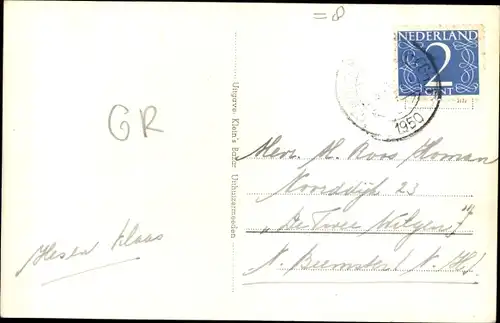 = 8
NEDERLAND
2
CENT
1950
GR
Uitgave: Klein's Bazar, Uithuizermeeden
Mevr. H. Roos Homan
Noorddijk 23
"De Twee Wilgen"
N. Beemster (N. H.)
Klaas